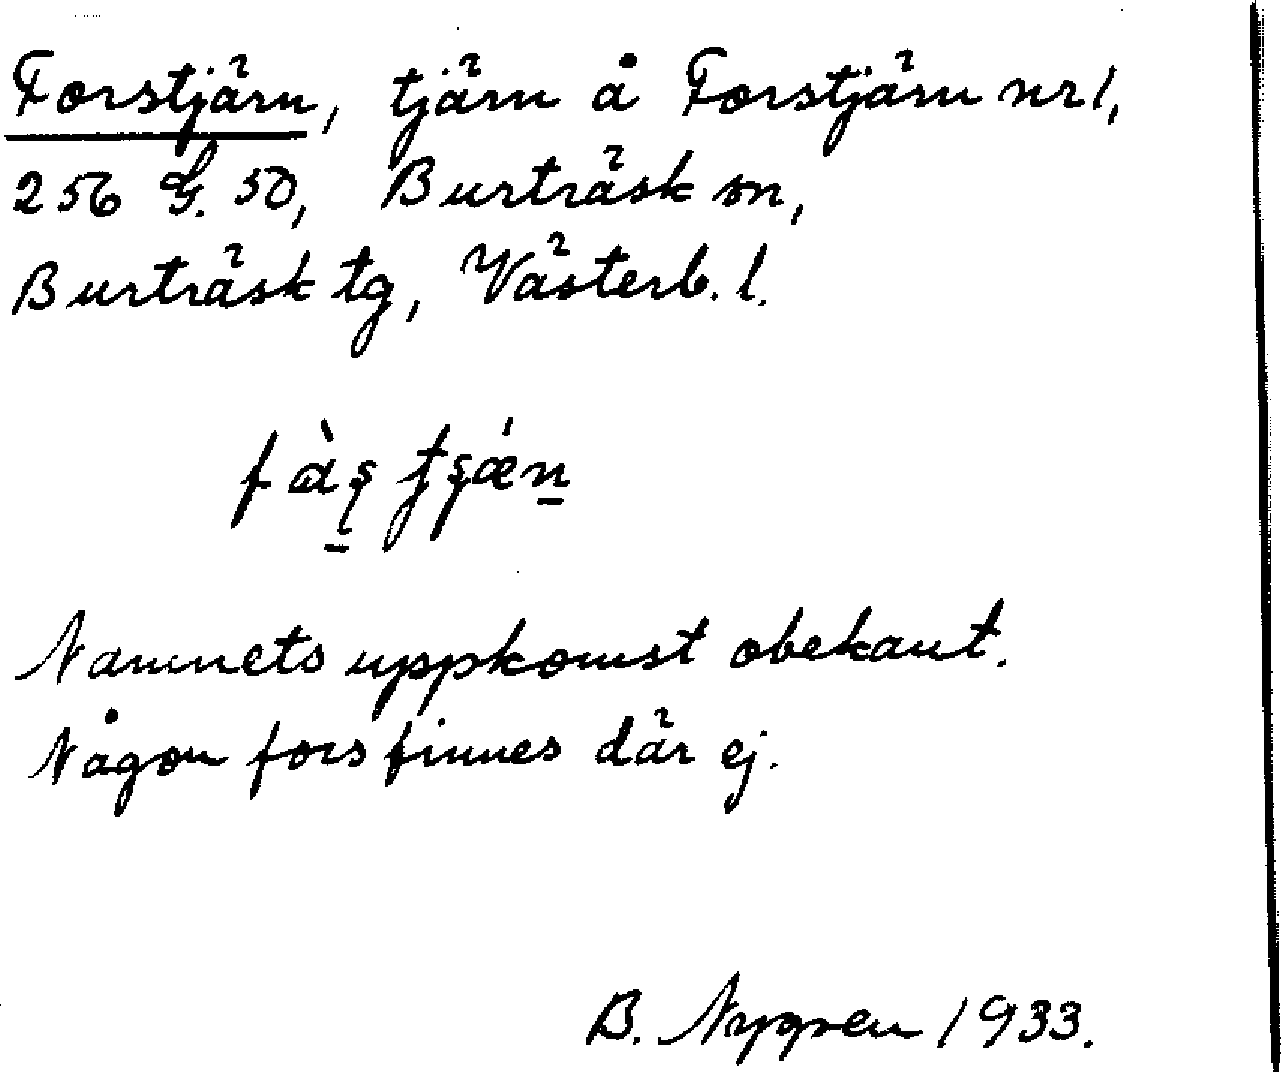 Forstjärn, tjärn å Forstjärn nr 1,
256 G. 50, Burträsk sn,
Burträsk tg, Västerb. l.
Namnets uppkomst obekant.
Någon fors finnes där ej.
B. Nygren 1933.